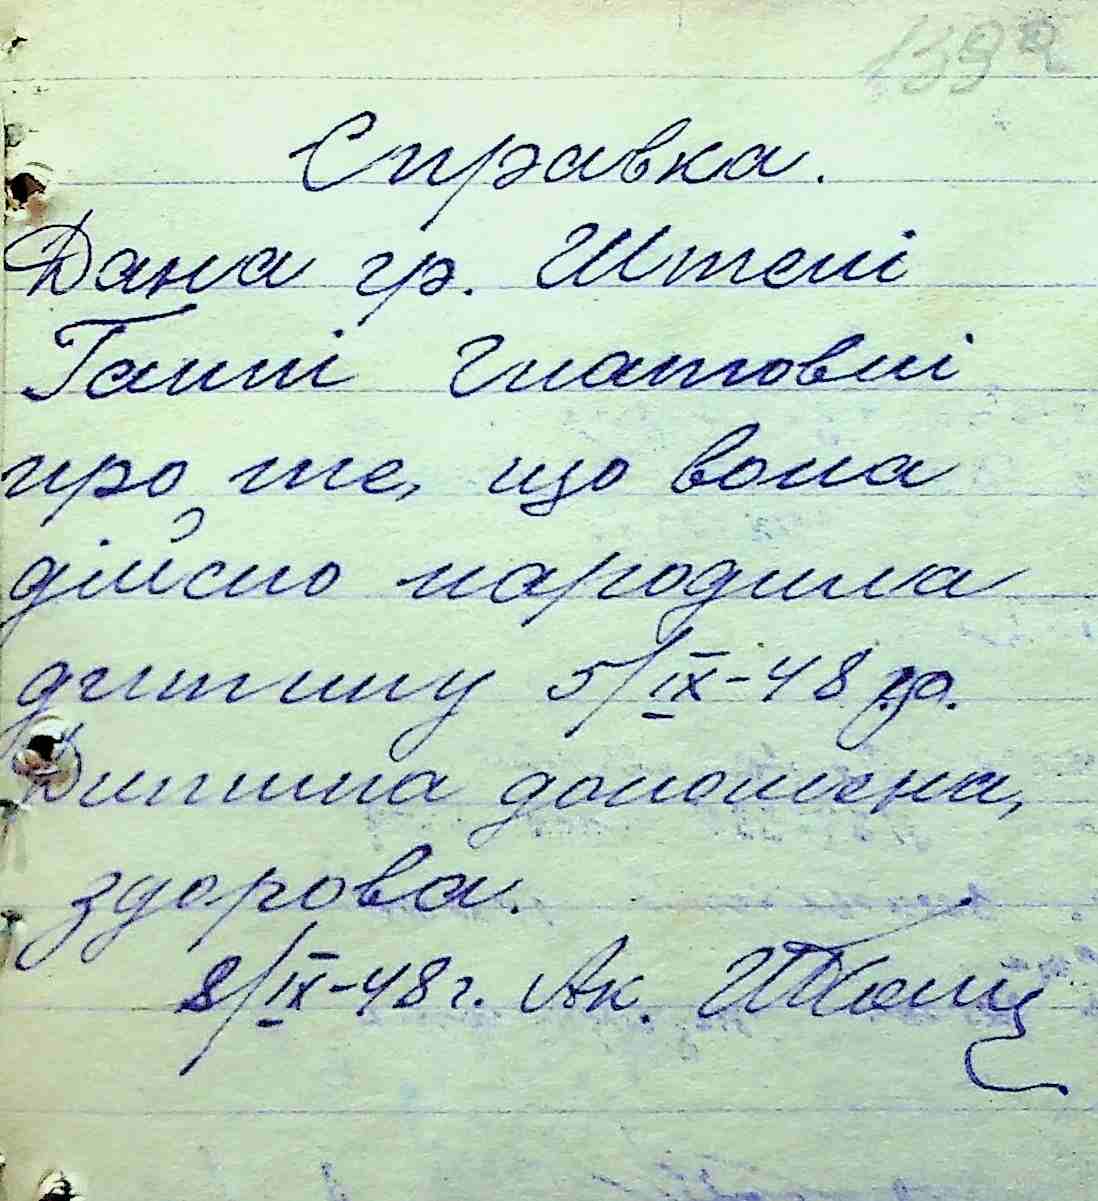 139
Справка.
Дана гр. Штені
Ганні Гнатовні
про те, що вона
дійсно народила
дитину 5/IX-48 р.
Дитина доношена,
здорова.
8/IX-48 г. Ак.